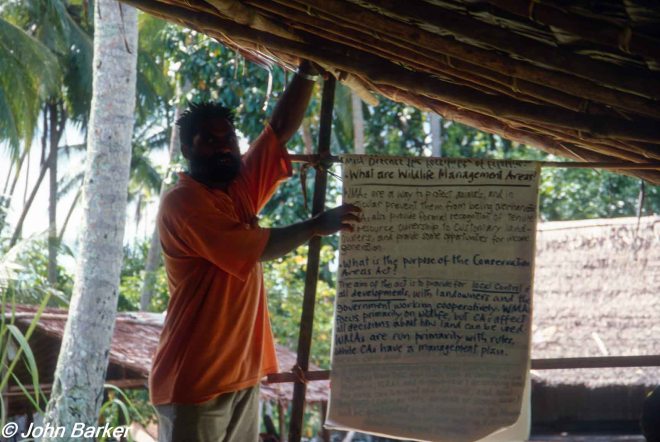 What are Wildlife Management Areas?
WMAs are a way to protect animals, and in
prevent them from being
also provide formal recognition of tenure
resource ownership to customary land-
owners, and provide some opportunities for income
generation.
What is the purpose of the Conservation
Areas Act?
The aim of the act is to provide for local control of
all developments, with landowners and the
government working cooperatively. WMAs
focus primarily on wildlife, but CAs affect
all decisions about how land can be used.
WMAs are run primarily with rules,
while CAs have a management plan.
© John Barker